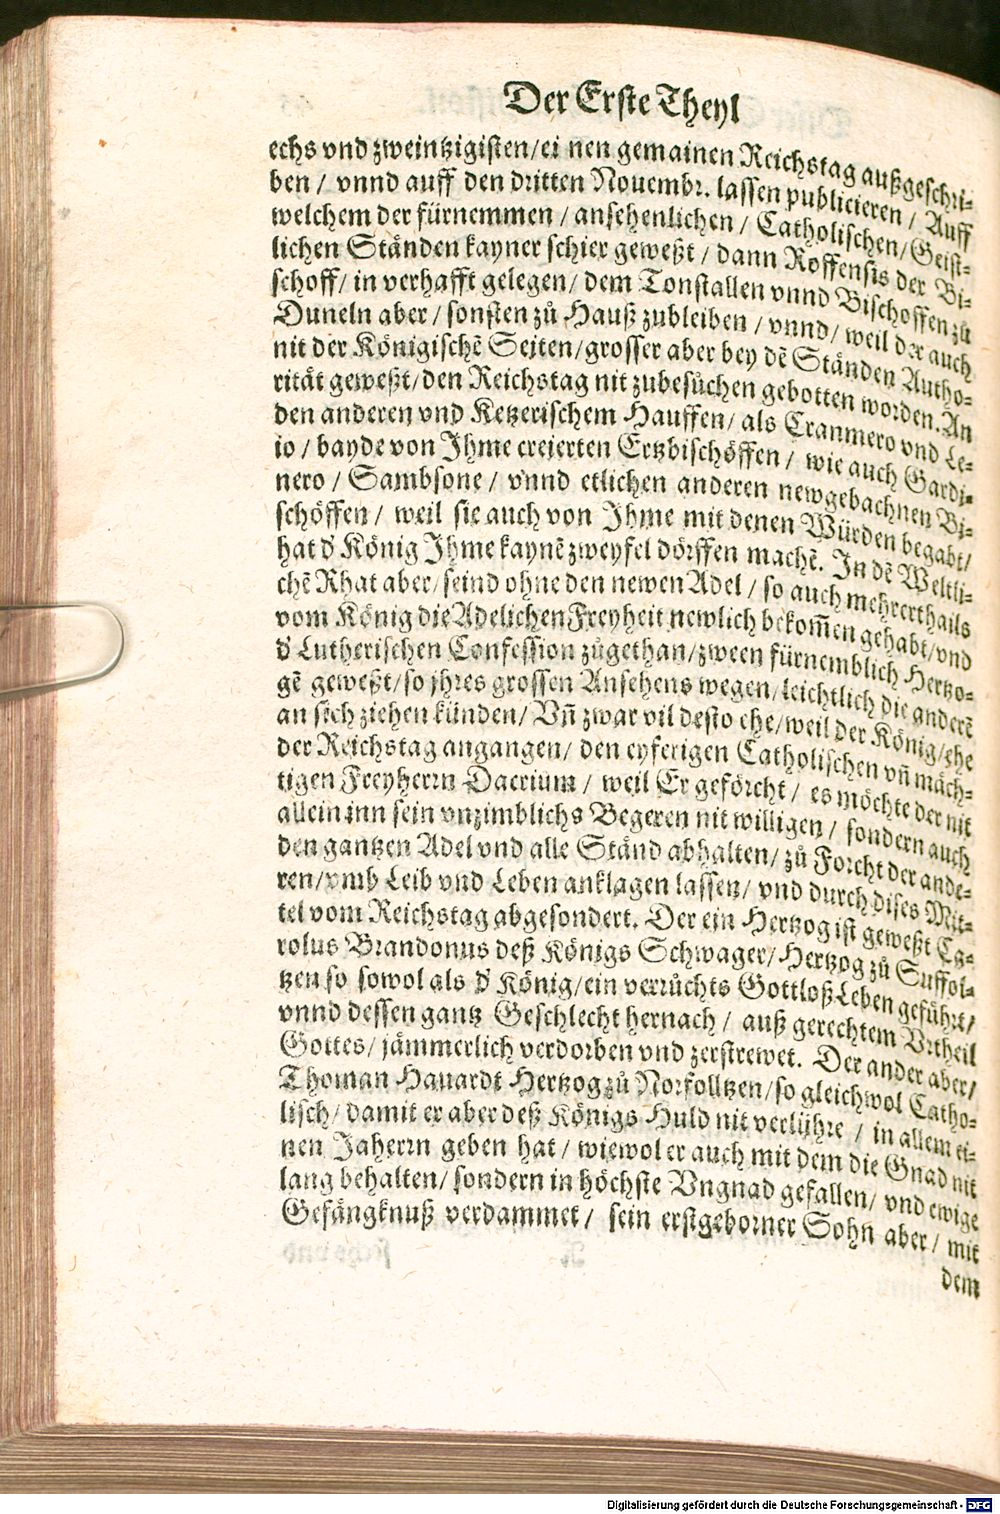 Der Erste Theyl
echs vnd zweintzigisten/ei nen gemainen Reichstag außgeschri-
ben / vnnd auff den dritten Nouembr. lassen publicieren / Auff
welchem der fürnemmen / ansehenlichen / Catholischen/Geist-
lichen Ständen kayner schier geweßt / dann Roffensis der Bi-
schoff/ in verhafft gelegen/ dem Tonstallen vnnd Bischoffen zů
Duneln aber / sonsten zů Hauß zubleiben / vnnd/ weil der auch
nit der Königischẽ Seiten/grosser aber bey dẽ Ständen Autho-
rität geweßt/den Reichstag nit zubesůchen gebotten worden. An
den anderen vnd Ketzerischem Hauffen/ als Cranmero vnd Le-
io / bayde von Ihme creierten Ertzbischöffen / wie auch Gardi-
nero / Sambsone / vnnd etlichen anderen newgebachnen Bi-
schöffen / weil sie auch von Ihme mit denen Würden begabt/
hat d' König Ihme kaynẽ zweyfel dörffen machẽ. In dẽ Weltli-
chẽ Rhat aber/seind ohne den newen Adel / so auch mehrerthails
vom König die Adelichen Freyheit newlich bekom̃en gehabt/vnd
d' Lutherischen Confession zůgethan/zween fürnemblich Hertzo-
gẽ geweßt/so jhres grossen Ansehens wegen/leichtlich die anderẽ
an sich ziehen künden/ Vñ zwar vil desto ehe/weil der König/ehe
der Reichstag angangen/ den eyferigen Catholischen vñ mäch-
tigen Freyherrn Dacrium / weil Er geförcht / es möchte der nit
allein inn sein vnzimblichs Begeren nit willigen / sondern auch
den gantzen Adel vnd alle Ständ abhalten/ zů Forcht der ande-
ren/vmb Leib vnd Leben anklagen lassen/ vnd durch dises Mit-
tel vom Reichstag abgesondert. Der ein Hertzog ist geweßt Ca-
rolus Brandonus deß Königs Schwager/ Hertzog zů Suffol-
tzen so sowol als d' König/ein verrůchts Gottloß Leben geführt/
vnnd dessen gantz Geschlecht hernach / auß gerechtem Vrtheil
Gottes/ jämmerlich verdorben vnd zerstrewet. Der ander aber/
Thoman Hauardt Hertzog zů Norfolltzen/so gleichwol Catho-
lisch/ damit er aber deß Königs Huld nit verlühre / in allem ei-
nen Jaherrn geben hat / wiewol er auch mit dem die Gnad nit
lang behalten/ sondern in höchste Vngnad gefallen/ vnd ewige
Gefängknuß verdammet / sein erstgeborner Sohn aber / mit
dem
Digitalisierung gefördert durch die Deutsche Forschungsgemeinschaft - DFG